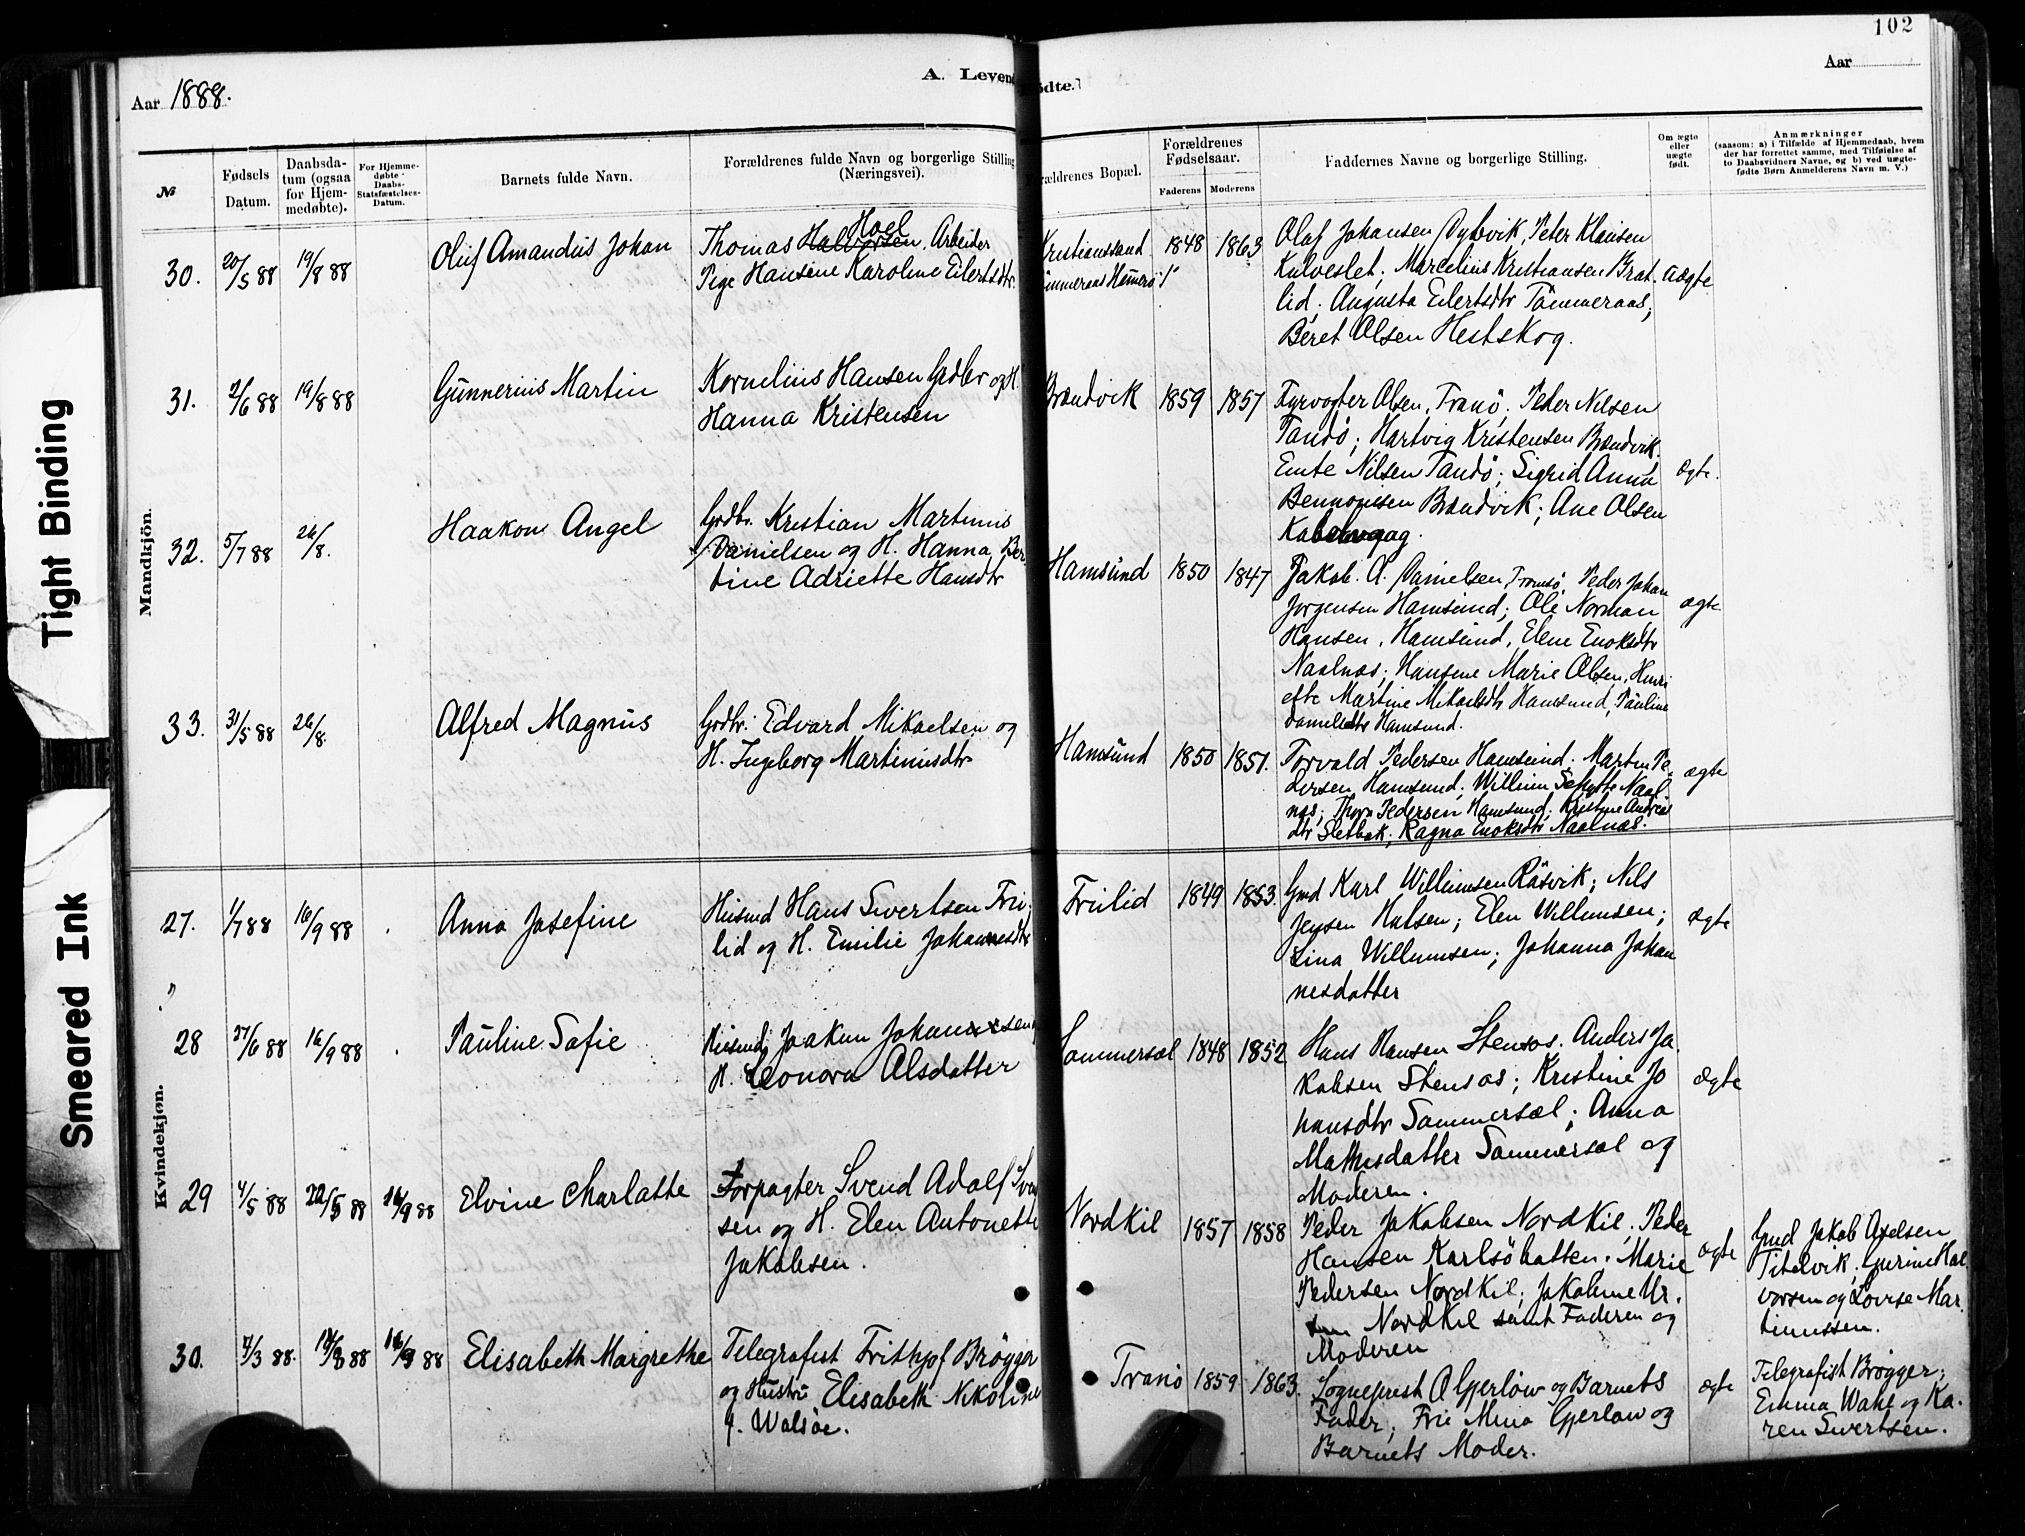 102
Aar 1888.
A. Levende
ødte.
Aar
№
Fødsels Datum.
Daabsda-
tum (ogsaa
for Hjem-
medøbte).
For Hjemme-
døbte
Daabs-
Stafæstelses-
Datum.
Barnets fulde Navn.
Forældrenes fulde Navn og borgerlige Stilling
(Næringsvei).
Forældrenes Bopæl.
Forældrenes
Fødselsaar.
Faderens
Moderens
Faddernes Navne og borgerlige Stilling.
Om ægte
eller
uægte
født.
Anmærkninger
(saasom: a) i Tilfælde af Hjemmedaab, hvem
der har forrettet samme, med Tilføielse af
to Daabsvidners Navne, og b) ved uægte-
fødte Børn Anmelderens Navn m. V.)
Tight Binding
Smeared Ink
Mandkjön.
Kvindekjøn.
30. 20/5 88 19/8 88
Oluf Amandus Johan
Hoel
Thomas Halvorsen, Arbeider
Pige Hansine Karoline Eilertsdtr.
Kristianssand
Tömmeraas Hamerö
1848 1863
Olaf Johansen Dybvik, Peter Klausen
Kulveslet; Marcelius Kristiansen Brat
lid; Augusta Eilertsdtr Tömmeraas;
Beret Olsen Hestskog.
uægte
31. 2/6 88 19/8 88
Gunnerius Martin
Kornelius Hansen Grdbr og H.
Hanna Kristensen
Brændvik 1859 1857
Fyrvogter Olsen, Tranö; Peder Nilsen
Tandö; Hartvig Kristensen Brændvik.
Emte Nilsen Tandö; Sigrid Anna
Bennonisen Brændvik; Ane Olsen
ægte.
32. 5/7 88 26/8.
Haakon Angel
Grdbr. Kristian Martinus
Danielsen og H. Hanna Ber
tine Adriette Hansdtr
Hamsund 1850 1847
Jakob. A. Danielsen Tranö, Peder Johan
Jorgensen Hamsund; Ole Norman
Hansen, Hamsund, Elene Enoksdtr
Naalnæs; Hansine Marie Olsen, Henri
ette Martine Mikaelsdtr Hamsund, Pauline
Danielsdtr Hamsund.
ægte
33. 31/5 88 26/8.
Alfred Magnus
Grdbr: Edvard Mikaelsen og
H. Ingeborg Martinusdtr
Hamsund 1850 1851.
Torvald Pedersen Hamsund. Marten Pe
dersen Hamsund; Willum Schytte Naal
næs; Thora Pedersen Hamsund; Kristine Andreas
dtr Sletbak; Ragna Enoksdtr Naalnæs.
ægte
27. 1/7 88 16/9 88
Anna Josefine
Husmd Hans Sivertsen Fru-
lid og H. Emilie Johannesdtr
Frulid 1849 1853.
Gmd Karl Willumsen Råsvik; Nils
Jensen Hulsen; Elen Willumsen;
Lina Willumsen; Johanna Johan
nesdatter
ægte
28 27/6 88 16/9 88
Pauline Sofie
Husmd Joakim Johannesen
H. Leonora Olsdatter
Sommersæl 1848 1852
Hans Hansen Stensos. Anders Ja
kobsen Stensos; Kristine Jo
hansdtr Sammersæl; Anna
Mathisdatter Sammersæl og
Moderen.
ægte
29 4/5 88 22/5 88 16/9 88
Elvine Charlotte
Forpagter Svend Adolf Svend
sen og H. Elen Antonette
Jakobsen.
Nordkil 1857 1858
Peder Jakobsen Nordkil, Peder
Hansen Karlsöhatten. Marie
Pedersen Nordkil; Jakobine
Nordkil samt Faderen og
Moderen
ægte
Gmd Jakob Axelsen
Titelvik; Gurine Hal
vorsen og Lovise Mar
tinussen.
30. 7/3 88. 16/9 88
Elisabeth Margrethe
Telegrafist Frithjof Brögger
og Hustru Elisabeth Nikoline
f. Walsöe.
Tranö 1859 1863.
Sogneprest O Gjerlöw og Barnets
Fader; Frue Mina Gjerlöw og
Barnets Moder.
ægte
Telegrafist Brögger;
Emma Wahl og Ka-
ren Sivertsen.